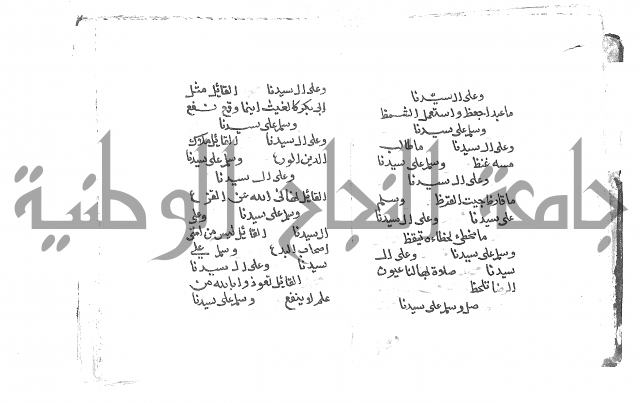 وعلى ال سيدنا
ما عبد احفظ واستعمل الشمظ
وسلم على سيدنا
وعلى ال سيدنا ما طالب
وسلم على سيدنا
وعلى ال سيدنا
ما قارظ القرظ وسلم
على سيدنا وعلى ال سيدنا
ما مخطئ لخطاءه تيقظ
وسلم على سيدنا وعلى ال
سيدنا صلاة لجمالنا عيون
الرضا تلحظ
صل وسلم على سيدنا
وعلى ال سيدنا القائل مثل
ابى بكر كالغيث اينما وقع نفع
وسلم على سيدنا
وعلى ال سيدنا القائل ملاك
الدين الورع وسلم على سيدنا
وعلى ال سيدنا
القائل الله عن القزع
وسلم على سيدنا وعلى
ال سيدنا القائل ليس من امتى
اصحاب البدع وسلم على
سيدنا وعلى ال سيدنا
القائل تعوذوا بالله من
علم لا ينفع وسلم على سيدنا
جامعة النجاح الوطنية